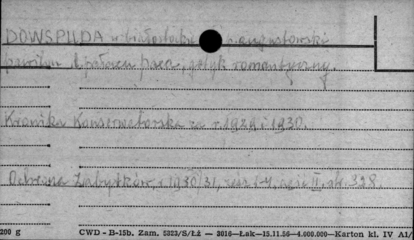 DOWSPUDA w białostockie augustowskie
pawilon pałacu paca, gotyk romantyczny.
Kronika Konserwatorska za r. 1929 i 1930.
Ochrona Zabytków, r. 1930/31, zesz. 1-4, część II, str. 328.
200 g CWD - B-15b. Zam. 5323/S/Łż — 3016—Łak—15.11.56—4.000.000—Karton kl. IV A1/